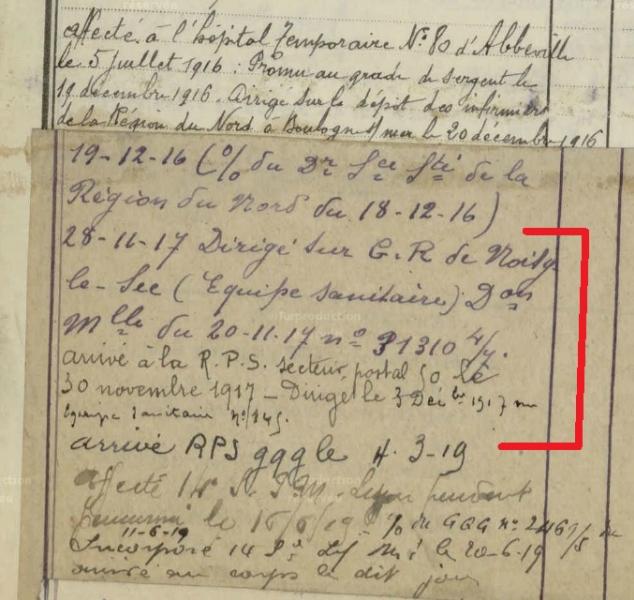 affecté à l'hôpital Temporaire N° 80 d'Abbeville
le 5 juillet 1916. Promu au grade de sergent le
19 décembre 1916. Dirigé sur le dépôt des infirmiers
de la Région du Nord à Boulogne s/ mer le 20 décembre 1916
19-12-16 (% du Dr Sce Sté de la
Région du Nord du 18-12-16)
28-11-17 Dirigé sur G.R de Noisy
le-Sec (Equipe sanitaire) Don
Mlle du 20-11-17 n° 31310 4/7.
arrivé à la R.P.S. secteur postal 50 le
30 novembre 1917 - Dirigé le 3 Décbre 1917 sur
Equipe Sanitaire n° 245.
arrivé RPS gqg le 4.3-19
affecté 14e S.I.M. Lyon
le 16/6/19 % du GQG n° 2467/5 du
11-6-19
Incorporé 14 le 20-6-19
arrivé au corps le dit jour